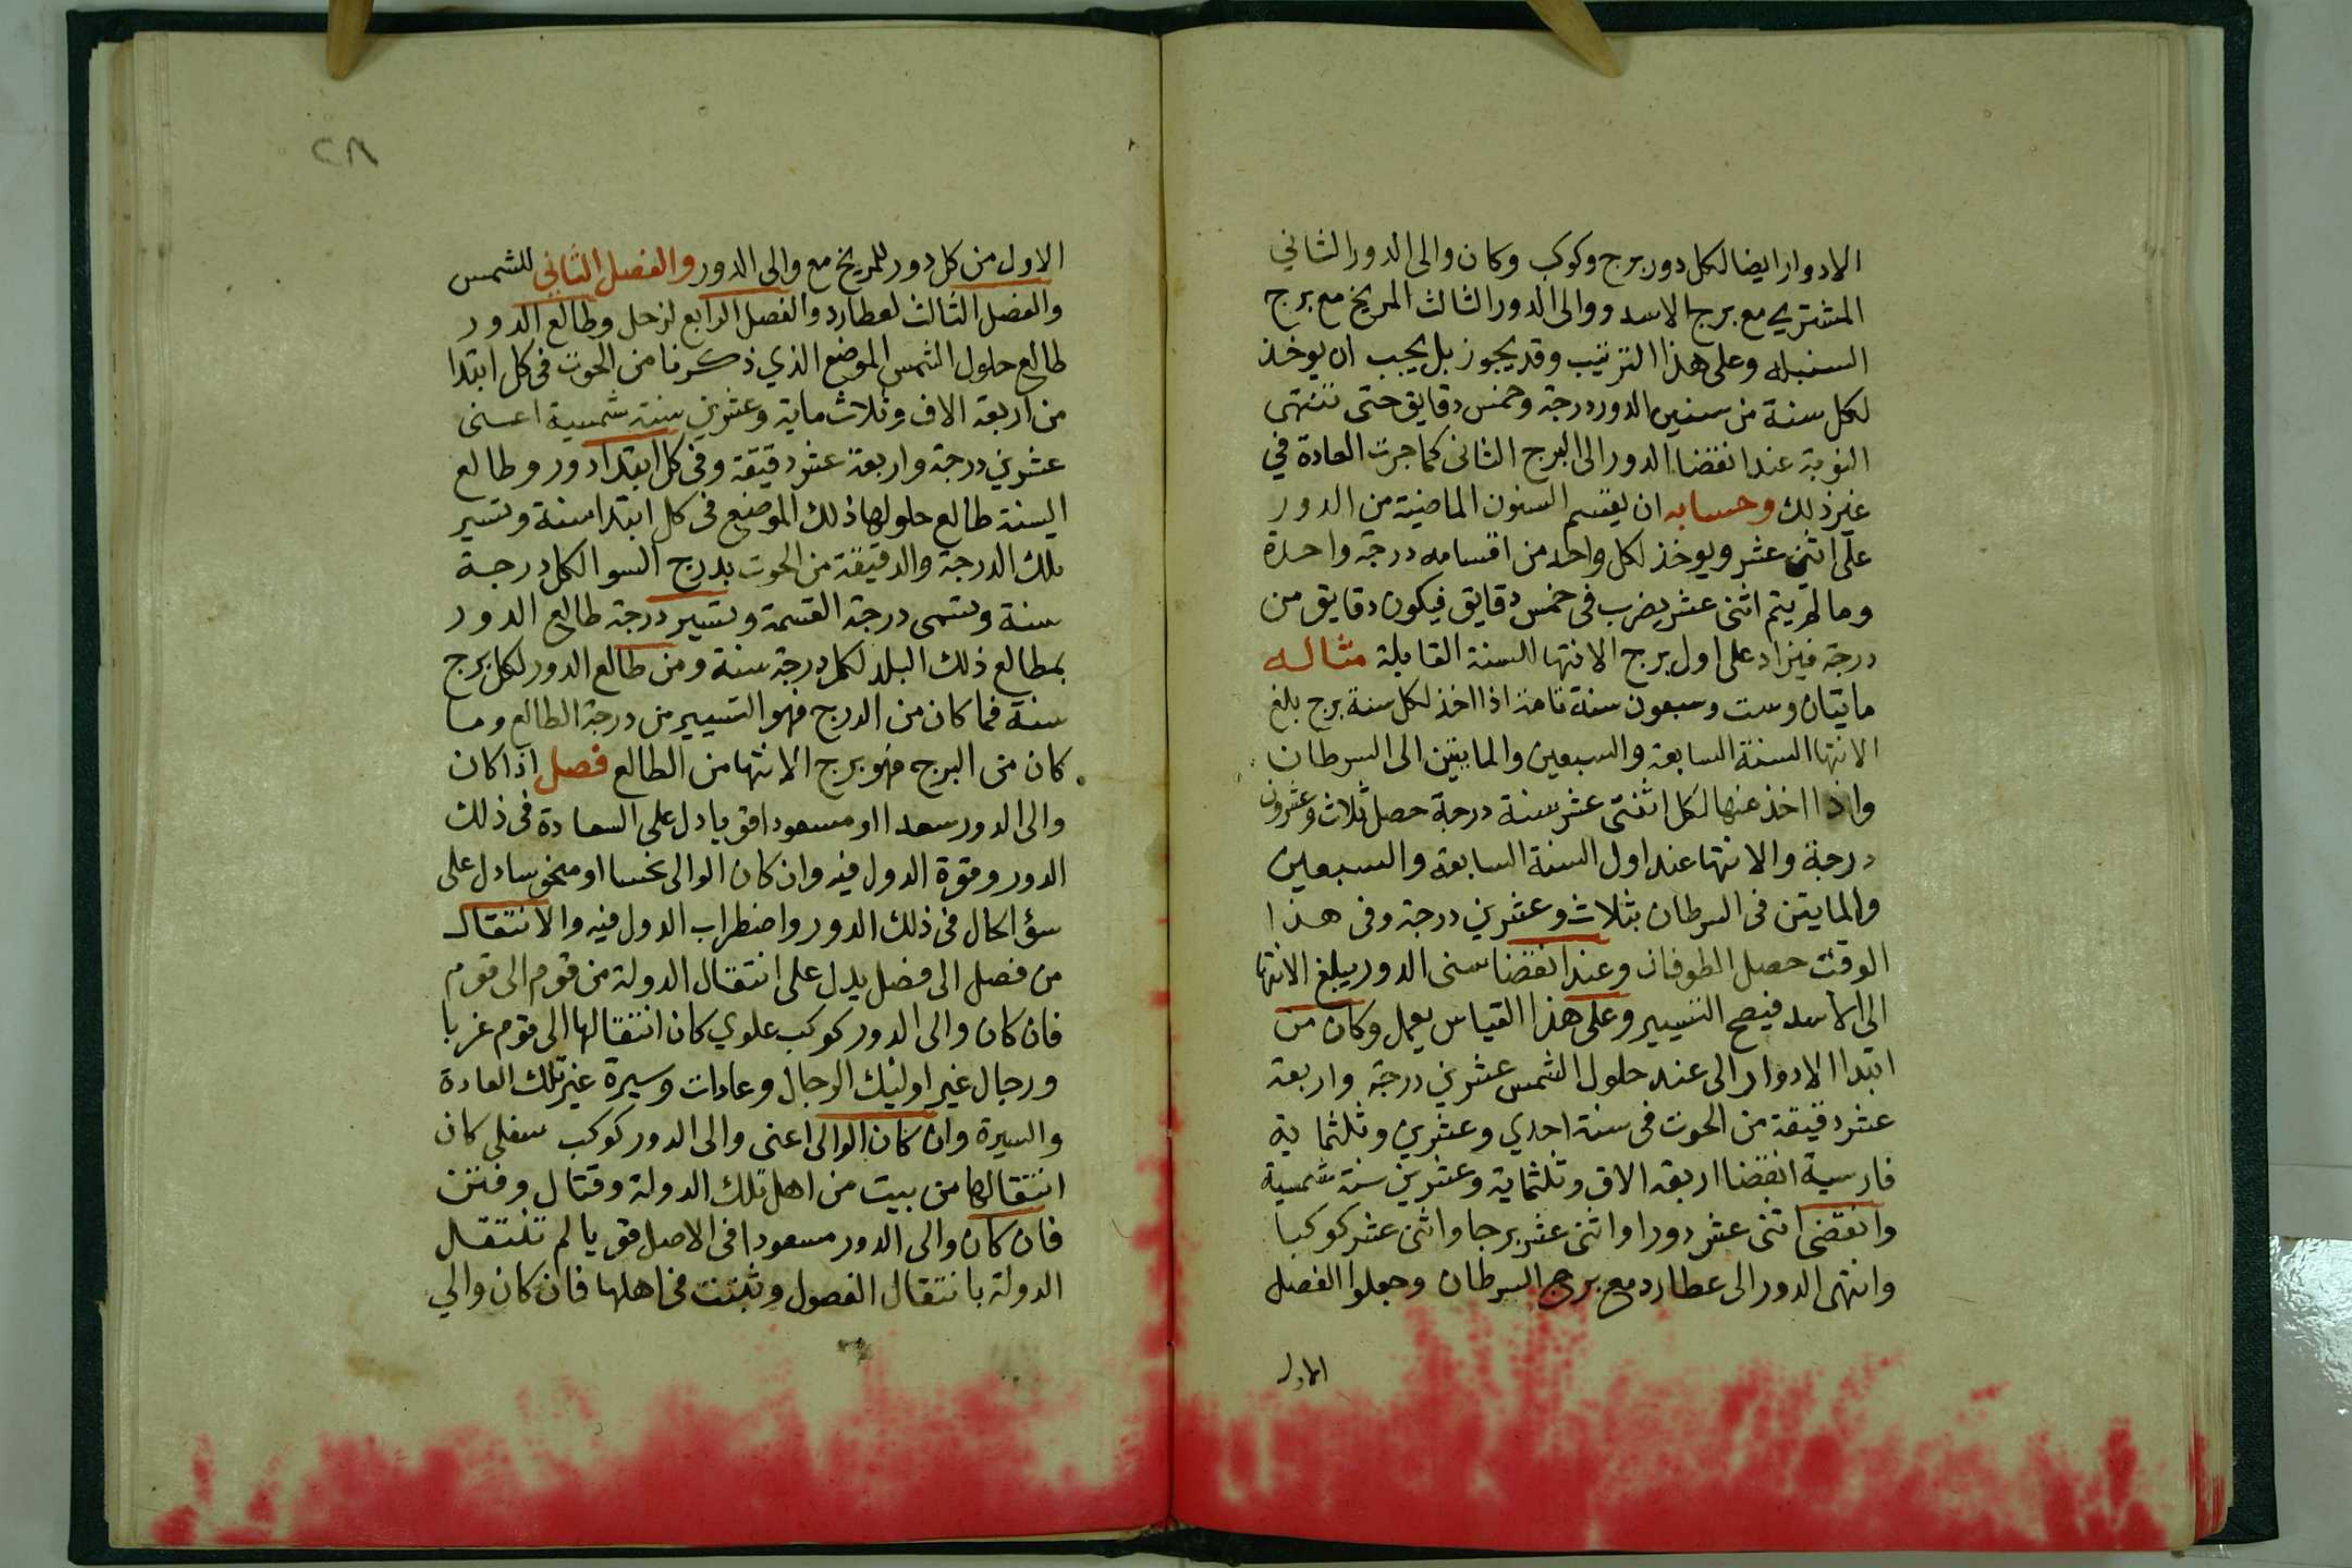 الادوار ايضا لكل دور برج وكوكب وكان والى الدور الثاني
المشتري مع برج الاسد ووالى الدور الثالث المريخ مع برج
السنبله وعلى هذا الترتيب وقد يجوز بل يجب ان يوخذ
لكل سنة من سنين الدور درجة وخمس دقايق حتى تنتهى
النوبة عند انقضا الدور الى البرج الثانى كما جرت العادة في
غير ذلك وحسابه ان يقسم السنون الماضية من الدور
على اثنى عشر ويوخذ لكل واحد من اقسامه درجة واحدة
وما لم يتم اثنى عشر يضرب فى خمس دقايق فيكون دقايق من
درجة فيزاد على اول برج الانتها للسنة القابلة مثاله
مايتان وست وسبعون سنة تامة اذا اخذ لكل سنة برج بلغ
الانتها السنة السابعة والسبعين والمايتين الى السرطان
واذا اخذ عنها لكل اثنتى عشر سنة درجة حصل ثلاث وعشرون
درجة والانتها عند اول السنة السابعة والسبعين
والمايتين فى السرطان بثلاث وعشرين درجة وفى هذا
الوقت حصل الطوفان وعند انقضا سنى الدور يبلغ الانتها
الى الاسد فيصح التسيير وعلى هذا القياس يعمل وكان من
ابتدا الادوار الى عند حلول الشمس عشرين درجة واربعة
عشر دقيقة من الحوت فى سنة احدي وعشرين وثلثماية
فارسية انقضا اربعة الاف وثلثماية وعشرين سنة شمسية
وانقضى اثنى عشر دورا واثنى عشر برجا واثنى عشر كوكبا
وانتهى الدور الى عطارد مع برج السرطان وجعلوا الفصل
الاول
٢٨
الاول من كل دور للمريخ مع والى الدور والفصل الثانى للشمس
والفصل الثالث لعطارد والفصل الرابع لزحل وطالع الدور
طالع حلول الشمس الموضع الذي ذكرنا من الحوت فى كل ابتدا
من اربعة الاف وثلاث ماية وعشرين سنة شمسية اعنى
عشرين درجة واربعة عشر دقيقة وفى كل ابتدا دور وطالع
السنة طالع حلولها ذلك الموضع فى كل ابتدا سنة وتسير
تلك الدرجة والدقيقة من الحوت بدرج السوا لكل درجة
سنة وتسمى درجة القسمة وتسير درجة طالع الدور
بمطالع ذلك البلد لكل درجة سنة ومن طالع الدور لكل برج
سنة فما كان من الدرج فهو التسيير من درجة الطالع وما
كان من البرج فهو برج الانتها من الطالع فصل اذا كان
والى الدور سعدا او مسعودا قويا دل على السعادة فى ذلك
الدور وقوة الدول فيه وان كان الوالى نحسا او منحوسا دل على
سؤ الحال فى ذلك الدور واضطراب الدول فيه والانتقال
من فصل الى فصل يدل على انتقال الدولة من قوم الى قوم
فان كان والى الدور كوكب علوي كان انتقالها الى قوم غربا
ورجال غير اوليك الرجال وعادات وسيرة غير تلك العادة
والسيرة وان كان الوالى اعنى والى الدور كوكب سفلى كان
انتقالها من بيت من اهل تلك الدولة وقتال وفتن
فان كان والى الدور مسعودا فى الاصل قويا لم تنتقل
الدولة بانتقال الفصول وثبتت فى اهلها فان كان والي